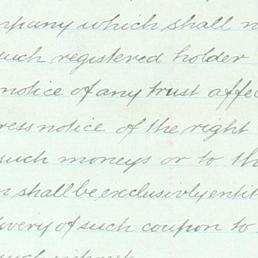 mpany which shall n
such registered holder
notice of any trust affec
ress notice of the right
such moneys or to th
n shall be exclusively entit
overy of such coupon to